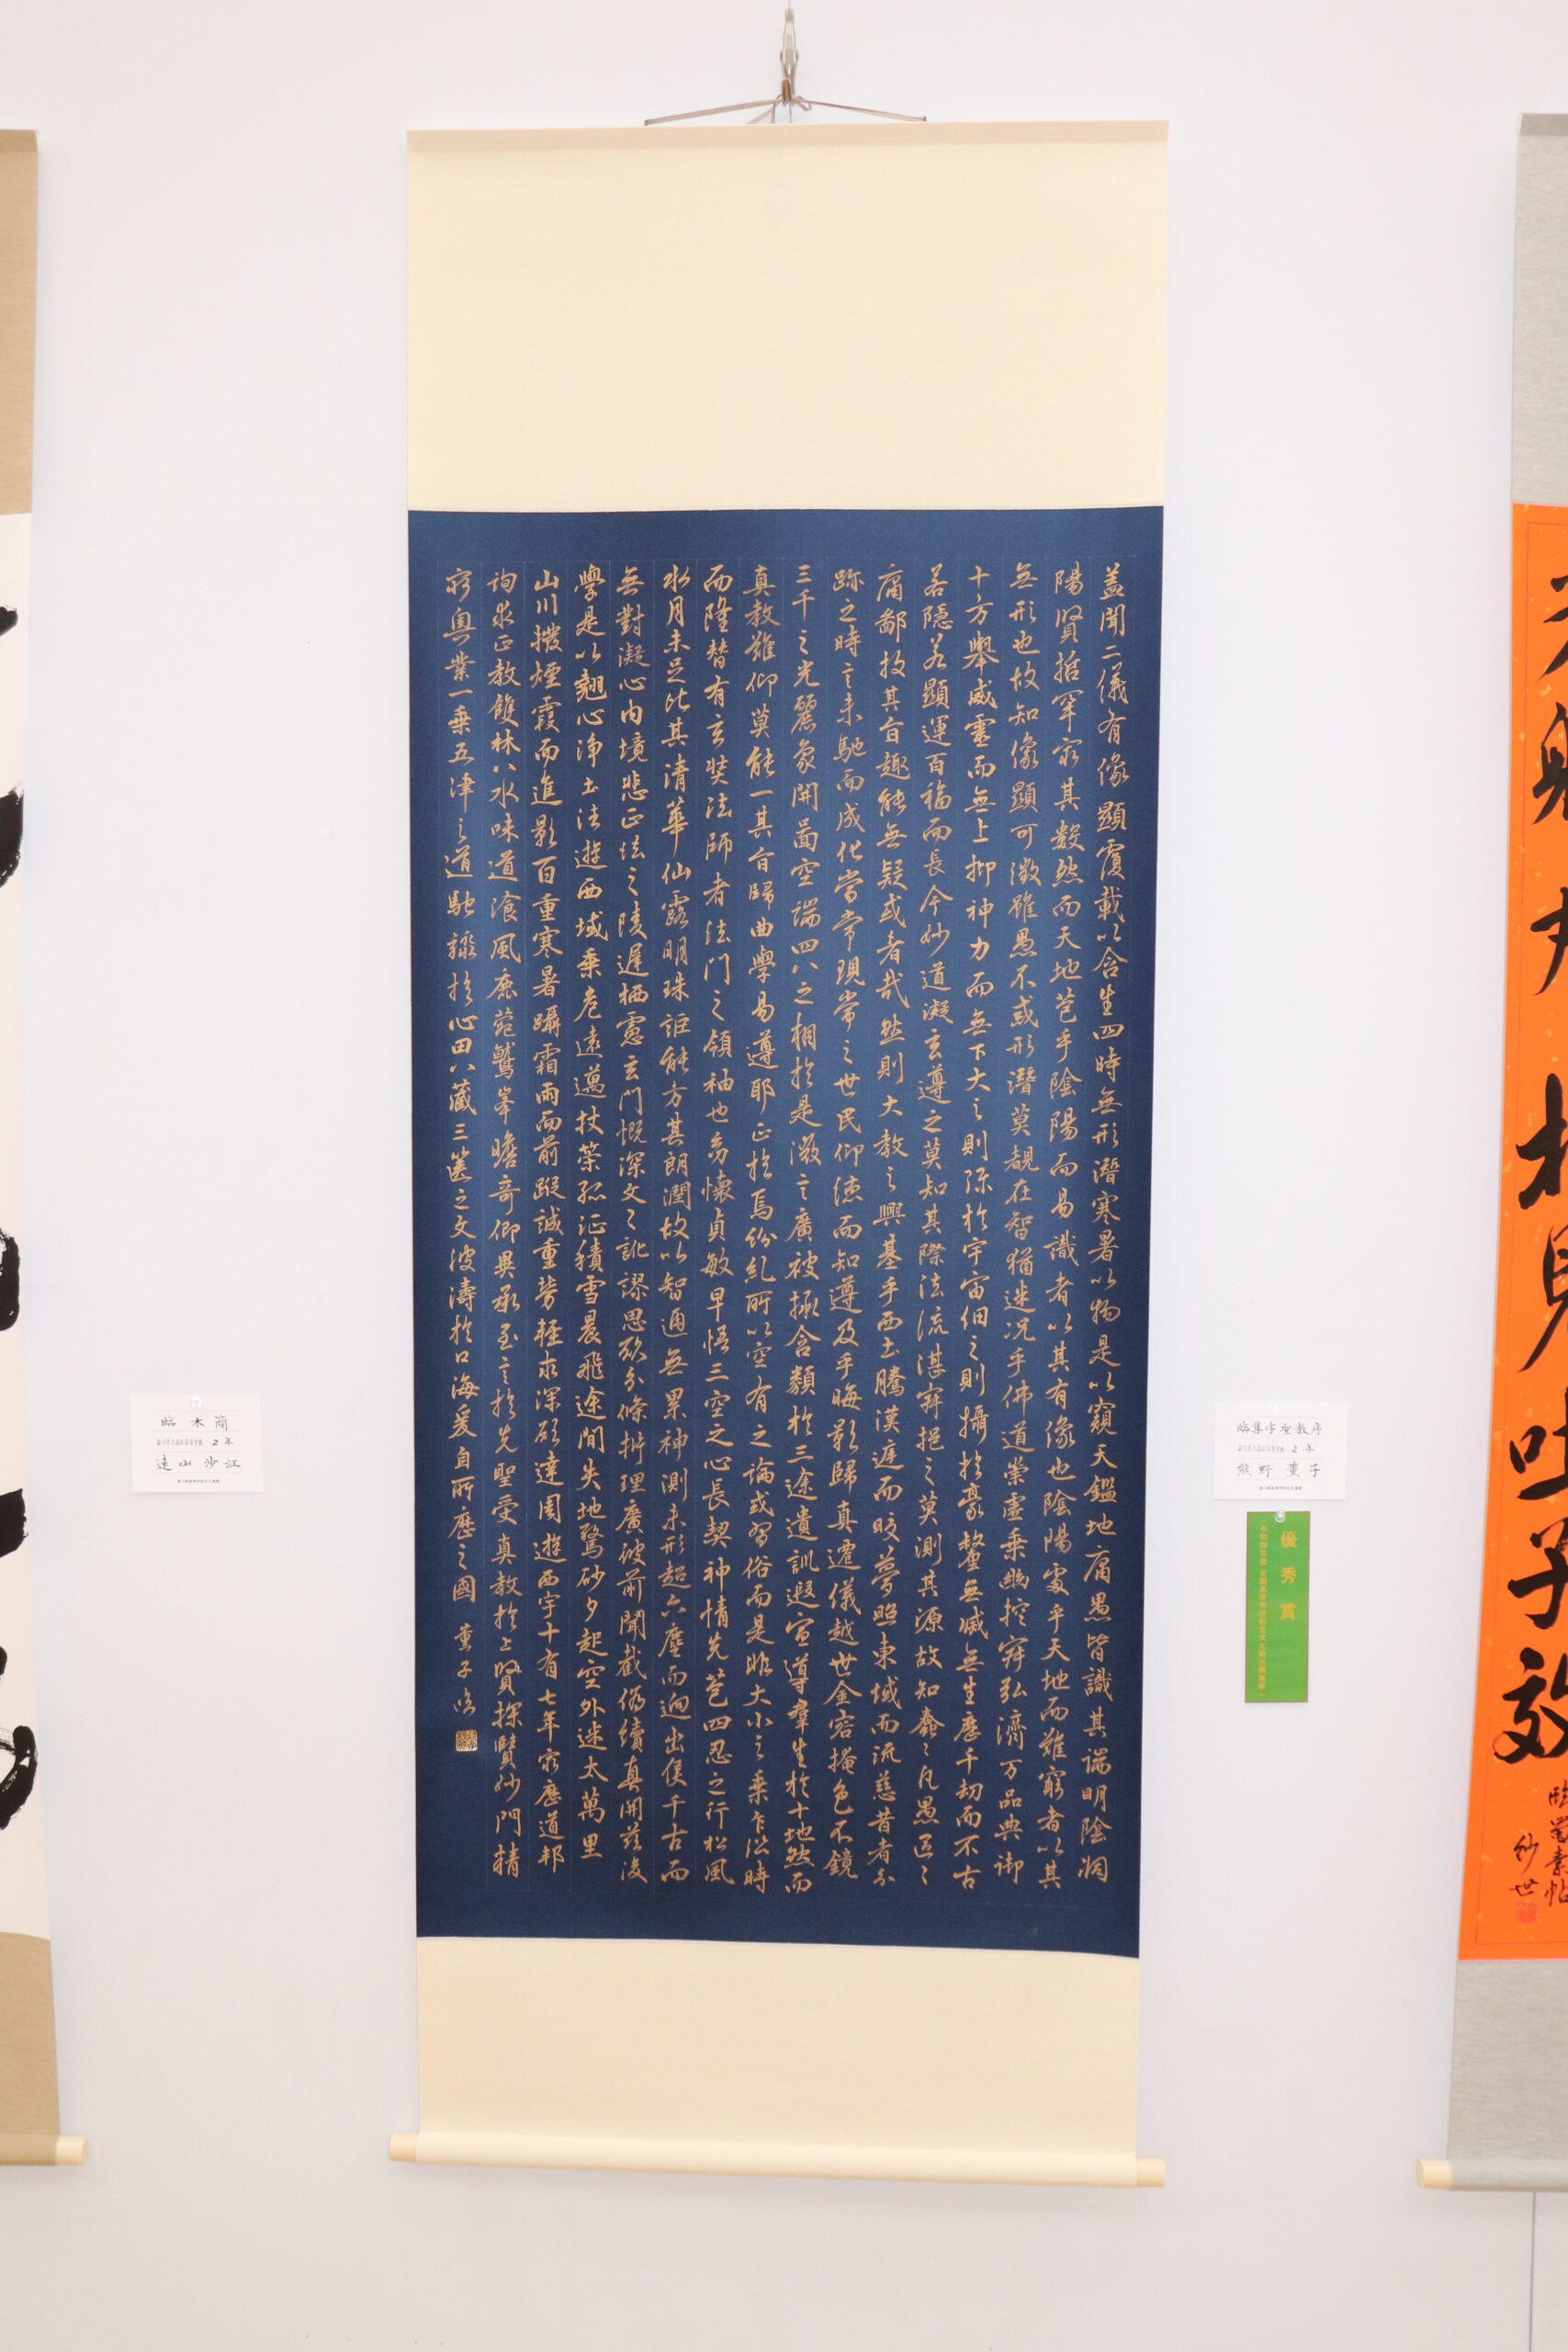 蓋聞二儀有像顯覆載以含生四時無形潛寒暑以物是以窺天鑑地庸愚皆識其端明陰洞
陽賢哲罕窮其數然而天地苞乎陰陽而易識者以其有像也陰陽處乎天地而難窮者以其
無形也故知像顯可徵雖愚不惑形潛莫覩在智猶迷況乎佛道崇虛乘幽控寂弘濟万品典御
十方舉威靈而無上抑神力而無下大之則彌於宇宙細之則攝於豪釐無滅無生歷千劫而不古
若隱若顯運百福而長今妙道凝玄遵之莫知其際法流湛寂挹之莫測其源故知蠢々凡愚區々
庸鄙投其旨趣能無疑惑者哉然則大教之興基乎西土騰漢庭而皎夢照東域而流慈昔者分
跡之時言未馳而成化當常現常之世民仰德而知遵及乎晦影歸真遷儀越世金容掩色不鏡
三千之光麗象開圖空端四八之相於是微言廣被拯含類於三途遺訓遐宣導群生於十地然而
真教難仰莫能一其旨歸曲學易遵耶正於焉紛糺所以空有之論或習俗而是非大小之乘乍沿時
而隆替有玄奘法師者法門之領袖也幼懷貞敏早悟三空之心長契神情先苞四忍之行松風
水月未足比其清華仙露明珠詎能方其朗潤故以智通無累神測未形超六塵而迥出侯千古而
無對凝心內境悲正法之陵遲栖慮玄門慨深文之訛謬思欲分條析理廣彼前聞截偽續真開茲後
學是以翹心淨土法遊西域乘危遠邁杖策孤征積雪晨飛途間失地驚砂夕起空外迷天萬里
山川撥煙霞而進影百重寒暑躡霜雨而前蹤誠重勞輕求深願達周遊西宇十有七年窮歷道邦
詢求正教雙林八水味道飡風鹿菀鷲峯瞻奇仰異承至言於先聖受真教於上賢探賾妙門精
窮奧業一乘五津之道馳驟於心田八藏三篋之文波濤於口海爰自所歷之國 薫子臨
臨集字聖教序
2年
熊野薫子
優秀賞
臨木簡
2年
遠山沙江
相見吐子
臨蜀素帖
紗世